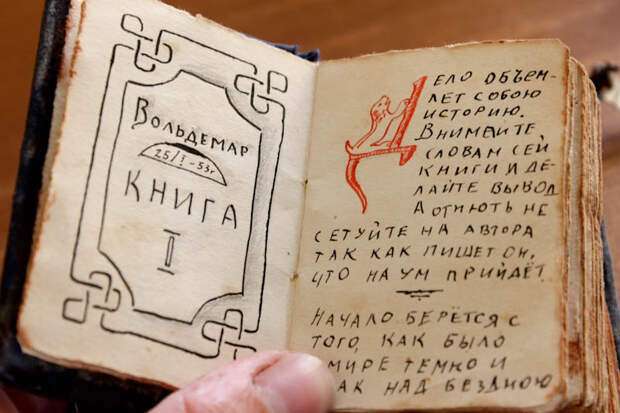 ВОЛЬДЕМАР
25/I-53г
КНИГА
I
ДЕЛО ОБЪЕМ-
ЛЕТ СОБОЮ
ИСТОРИЮ.
ВНИМАЙТЕ
СЛОВАМ СЕЙ
КНИГИ И ДЕ-
ЛАЙТЕ ВЫВОД
А ОТНЮТЬ НЕ
СЕТУЙТЕ НА АВТОРА
ТАК КАК ПИШЕТ ОН,
ЧТО НА УМ ПРИЙДЁТ.
НАЧАЛО БЕРЁТСЯ С
ТОГО, КАК БЫЛО
МИРЕ ТЕМНО И
НАД БЕЗДНОЮ